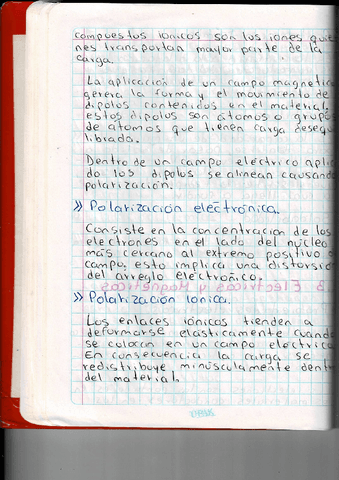 compuestos ionicos son los iones quie
nes transportan mayor parte de la
carga.
La aplicación de un campo magnetico
genera la forma y el movimiento de
dipolos contenidos en el material,
estos dipolos son átomos o grupos
de átomos que tienen carga desequi
librada.
Dentro de un campo eléctrico aplica
do los dipolos se alinean causando
polarización.
» Polarización electrónica.
Consiste en la concentración de los
electrones en el lado del núcleo
más cercano al extremo positivo
campo, esto implica una distorsió
del arreglo electrónico.
» Polarización Ionica.
Los enlaces iónicos tienden a
deformarse elásticamente cuando
se colocan en un campo eléctrico
En consecuencia la carga se
redistribuye minúsculamente dentr
del material.